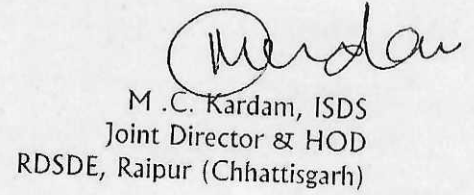 M .C. Kardam, ISDS
Joint Director & HOD
RDSDE, Raipur (Chhattisgarh)